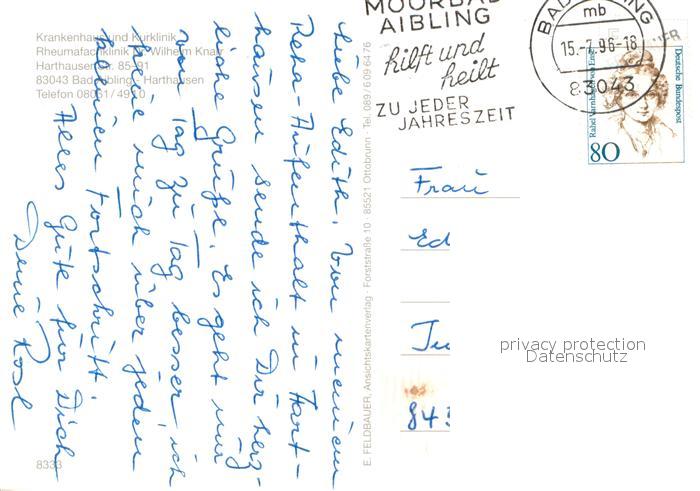 Krankenhaus und Kurklinik
Rheumafachklinik Dr. Wilhelm Knarr
Harthauser Str. 85-91
83043 Bad Aibling - Harthausen
Telefon 08061 / 49
Liebe Edith, Von meinem
Reha-Aufenthalt in Hart-
hausen sende ich Dir herz-
liche Grüße. Es geht mir
von Tag zu Tag besser ich
freue mich über jeden
kleinen Fortschritt.
Alles Gute für Dich
Deine Rosl
8333
E. FELDBAUER, Ansichtskartenverlag · Forststraße 10 · 85521 Ottobrunn · Tel. 089/6 09 64 76
MOORBAD
AIBLING
hilft und
heilt
ZU JEDER
JAHRESZEIT
BAD AIBLING
mb
15.-7.96-18
83043
Deutsche Bundespost
Rahel Varnhagen von Ense
80
Frau
Ed
843
privacy protection
Datenschutz